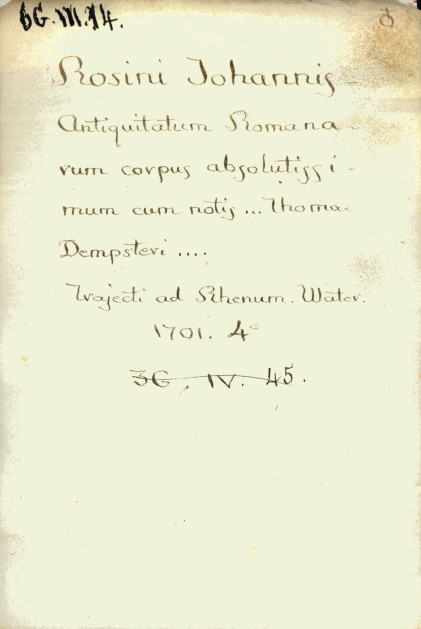 6G.III.14.
Rosini Johannis
Antiquitatum Romana-
rum corpus absolutissi-
mum cum notis ... Thoma
Dempsteri ....
Trajecti ad Rhenum. Water.
1701. 4°
3G. IV. 45.